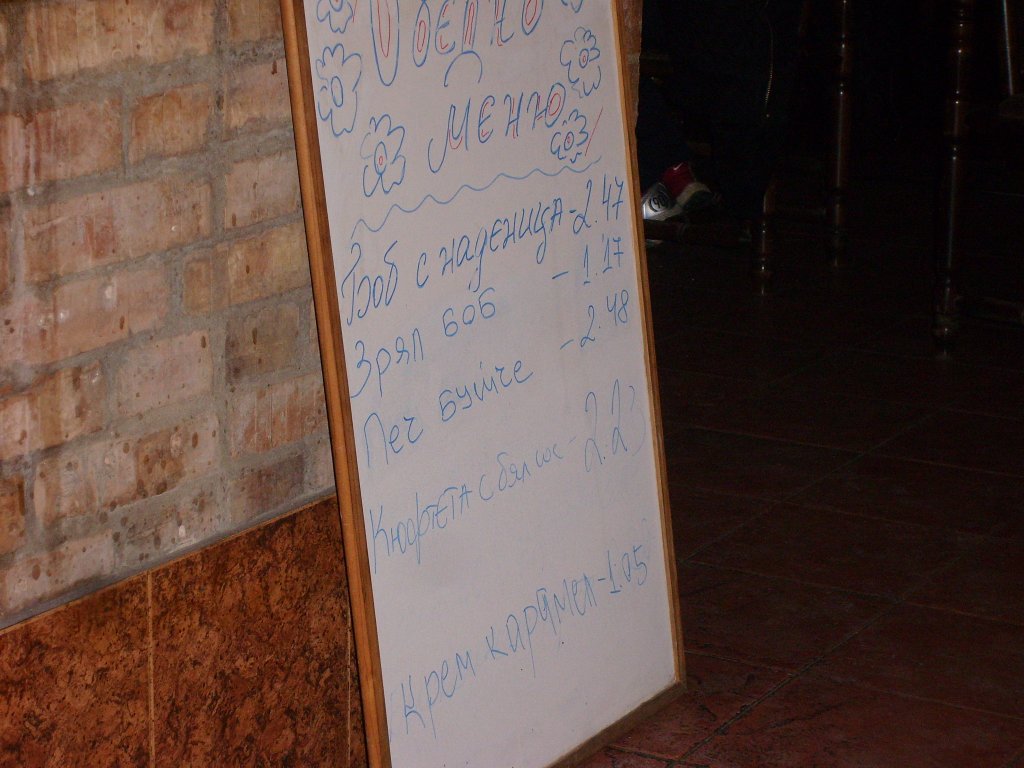 Обедно
Меню
Боб с наденица - 2.47
Зрял боб - 1.17
Печ бутче - 2.48
Кюфтета с бял сос - 2.23
Крем карамел - 1.05